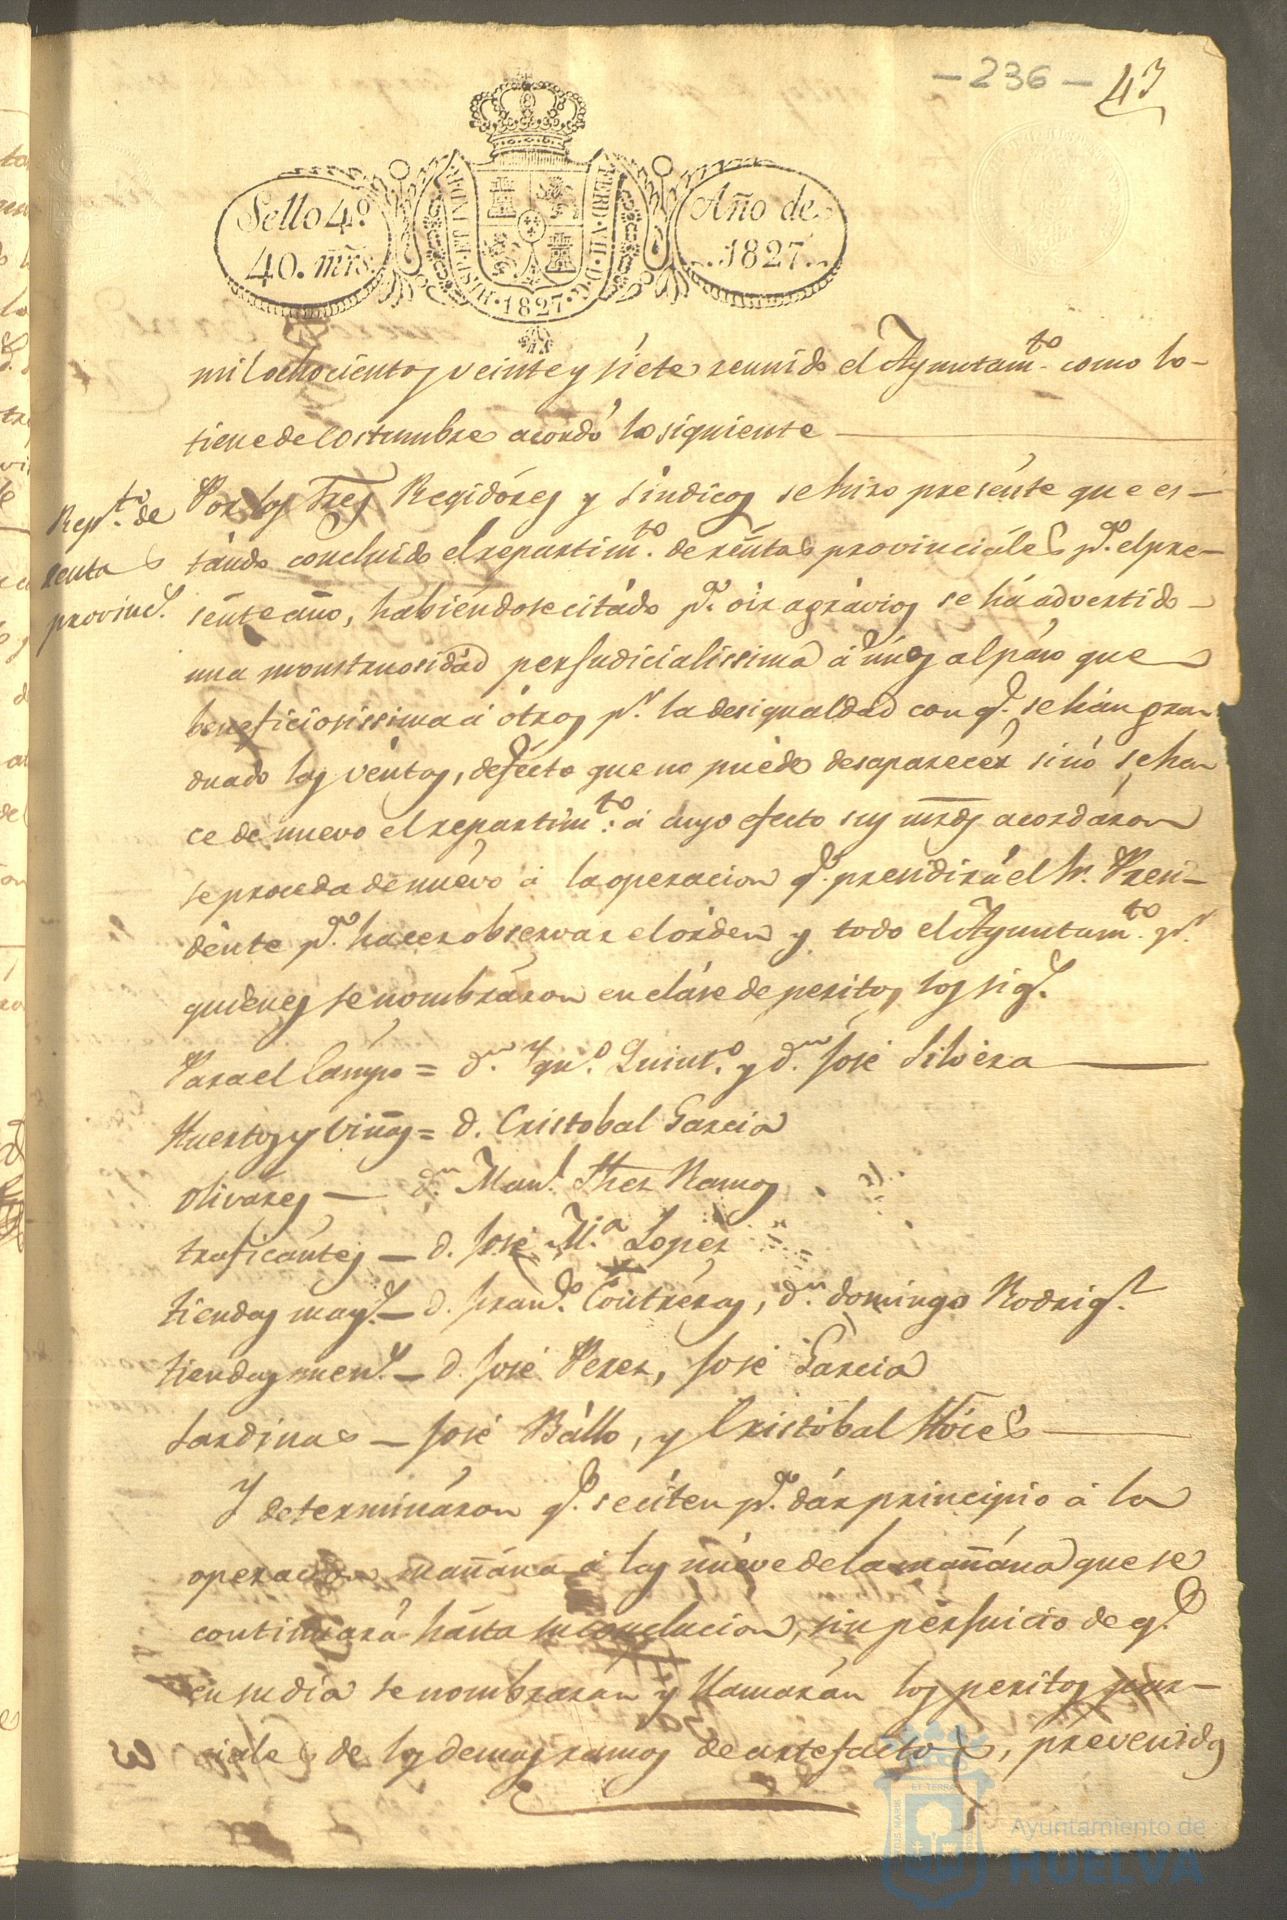 - 236 -
43
Sello 4.º
40. mrs.
HISP. ET IND. R.
FERD. VII. D. G.
1827
Año de
1827.
mil ochocientos veinte y siete reunido el Ayuntam.to como lo
tiene de costumbre acordó lo siguiente
Rep.to de
rentas
provinc.s
Por los Sres Regidóres y sindicos se hizo presénte que es-
tando concluido el repartim.to de réntas provinciáles p.a el pre-
sénte año, habiéndose citádo p.a oir agrávios se há advertido
una monstruosidad perjudicialissima á únos al páso que
beneficiosissima á ótros p.r la desigualdad con q.e se hán gra-
duado las véntas, defécto que no puéde desaparecér sinó se ha-
ce de nuevo el repartim.to: á cuyo efecto sus mrds acordáron
se proceda de nuévo á la operacion q.e presidirá el Sr. Presi-
dénte p.a hacer observar el órden y todo el Ayuntam.to p.r
quienes se nombráron en cláse de peritos los sig.s
Para el Campo = d.n Jqn.o Quint.o y d.n José Silvéra
Huertos y Viñas = d. Cristobal Garcia
Olivares - d.n Man.l Hrez Ramos
traficántes - d. José M.a Lopez
tiendas may.s - d. Fran.co Contréras, d.n domingo Rodrig.z
tiendas men.s - d. José Perez, José Garcia
Sardinas - José Bállo, y Cristóbal
Y determináron q.e se citen p.a dár principio á la
operacion mañána á las nuéve de la mañána que se
continuará hásta su conclucion, sin perjuicio de q.e
en su día se nombraran y llamarán los peritos par-
ciales de los demas ramos de artefactos, prevenidos
ET TERRA
Ayuntamiento de
HUELVA